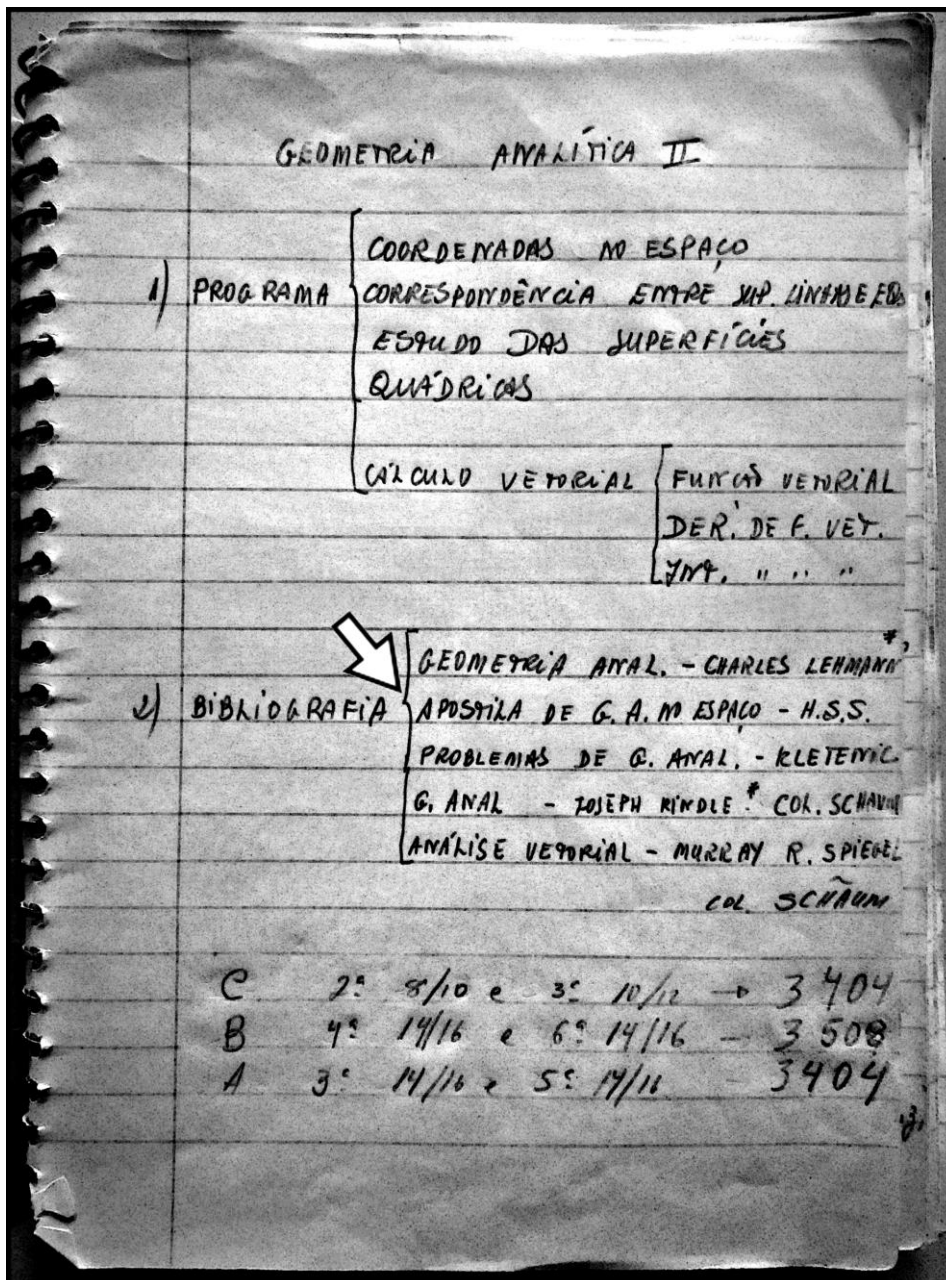 GEOMETRIA ANALÍTICA II
1) PROGRAMA
COORDENADAS NO ESPAÇO
CORRESPONDÊNCIA ENTRE SUP. LINHAS E EQS
ESTUDO DAS SUPERFÍCIES
QUÁDRICAS
CÁLCULO VETORIAL
FUNÇÃO VETORIAL
DER. DE F. VET.
INT. " " "
2) BIBLIOGRAFIA
GEOMETRIA ANAL. - CHARLES LEHMANN *
APOSTILA DE G. A. NO ESPAÇO - H.S.S.
PROBLEMAS DE G. ANAL. - KLETENIC
G. ANAL - JOSEPH KINDLE * COL. SCHAUM
ANÁLISE VETORIAL - MURRAY R. SPIEGEL
COL. SCHAUM
C 2ª 8/10 e 3ª 10/12 → 3404
B 4ª 14/16 e 6ª 14/16 - 3508
A 3ª 14/16 e 5ª 14/16 3404